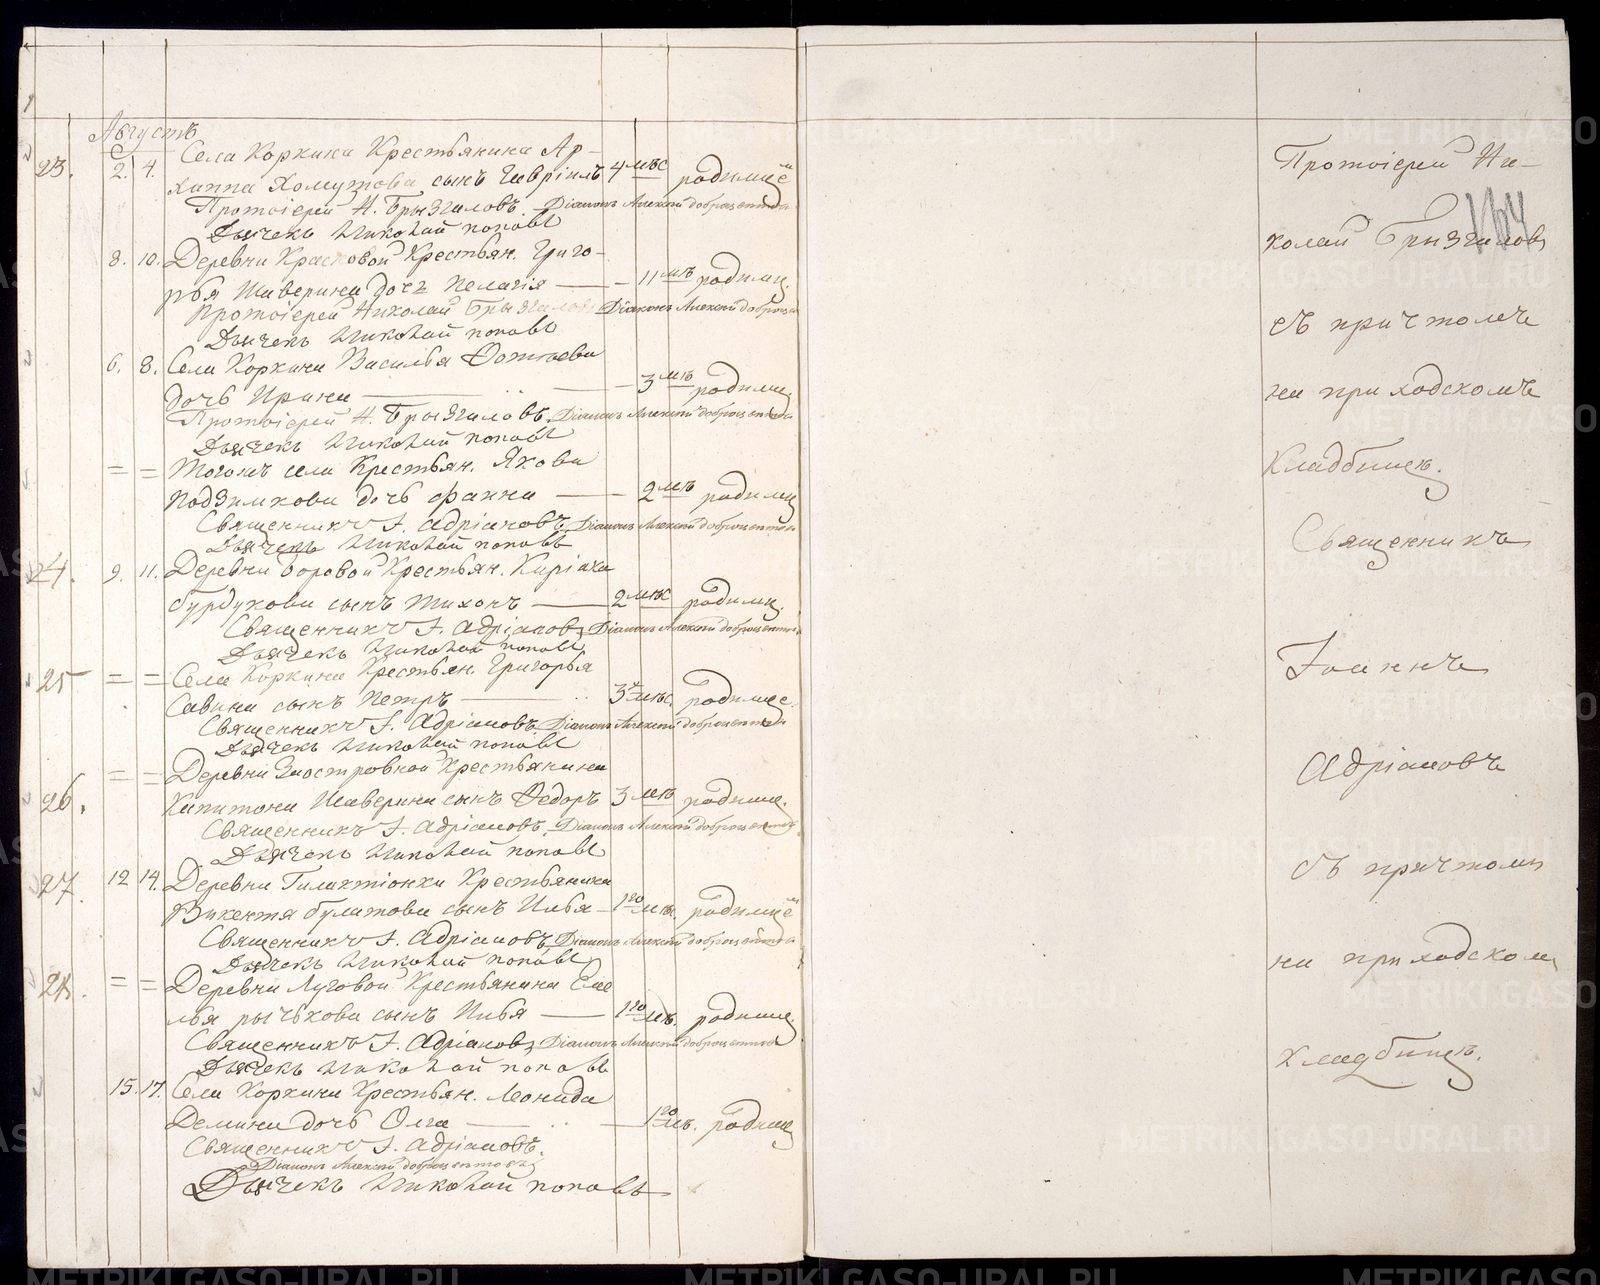 Августъ
23. 2. 4. Села Коркина Крестьянина Ар-
хиппа Хомутова сынъ Гавріилъ 4 мѣс родимцё
Протоіерей Н. Брызгаловъ. Діаконъ Алексій
Дьячекъ Николай Поповъ
8. 10. Деревни Красковой Крестьян. Григо-
рья Шаверина дочь Пелагія — 11 мѣ родимц.
Протоіерей Николай Брызгаловъ Діаконъ Алексій
Дьячекъ Николай Поповъ
6. 8. Села Коркина Василья Фотіева
дочь Ирина — 3 мѣ родимц
Протоіерей Н. Брызгаловъ. Діаконъ Алексій
Дьячекъ Николай Поповъ
= = Тогожъ села Крестьян. Якова
Подзимкова дочь Фаина — 2 мѣ родимц
Священникъ І. Адріановъ Діаконъ Алексій
Дьячекъ Николай Поповъ
24. 9. 11. Деревни Боровой Крестьян. Киріака
Бурдукова сынъ Тихонъ — 2 мѣс родимц.
Священникъ І. Адріановъ Діаконъ Алексій
Дьячекъ Николай Поповъ
25 = = Села Коркина Крестьян. Григорья
Савина сынъ Петръ — 3 мѣс. родимце.
Священникъ І. Адріановъ. Діаконъ Алексій
Дьячекъ Николай Поповъ
= = Деревни Заостровной Крестьянина
26. Капитона Шаверина сынъ Ѳедоръ 3 мѣ родимце.
Священникъ І. Адріановъ. Діаконъ Алексій
Дьячекъ Николай Поповъ
27. 12 14. Деревни Галактіонки Крестьянина
Викентя Булатова сынъ Илья — 1го мѣ. родимцё
Священникъ І. Адріановъ Діаконъ Алексій
Дьячекъ Николай Поповъ
28. = = Деревни Луговой Крестьянина Еме
лья Рычкова сынъ Илья — 1го мѣ. родимц.
Священникъ І. Адріановъ Діаконъ Алексій
Дьячекъ Николай Поповъ
15. 17. Села Коркина Крестьян. Леонида
Демина дочь Олга — 1го мѣ. родимц
Священникъ І. Адріановъ.
Діаконъ Алексій
Дьячекъ Николай Поповъ
Протоіерей Ни-
колай Брызгаловъ
съ причтомъ
на приходскомъ
Кладбищѣ.
Священникъ
Іоаннъ
Адріановъ
съ причтомъ
на приходском
кладбищѣ.
METRIKI.GASO-URAL.RU